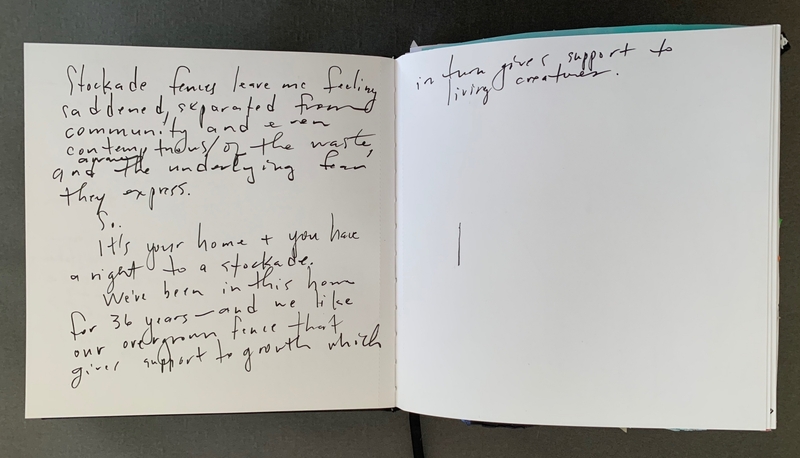 Stockade fences leave me feeling
saddened, separated from
community and even
contemptuous/of the waste,
and the underlying fear
they express.
So.
It's your home + you have
a right to a stockade.
We've been in this home
for 36 years—and we like
our overgrown fence that
gives support to growth which
in turn gives support to
living creatures.